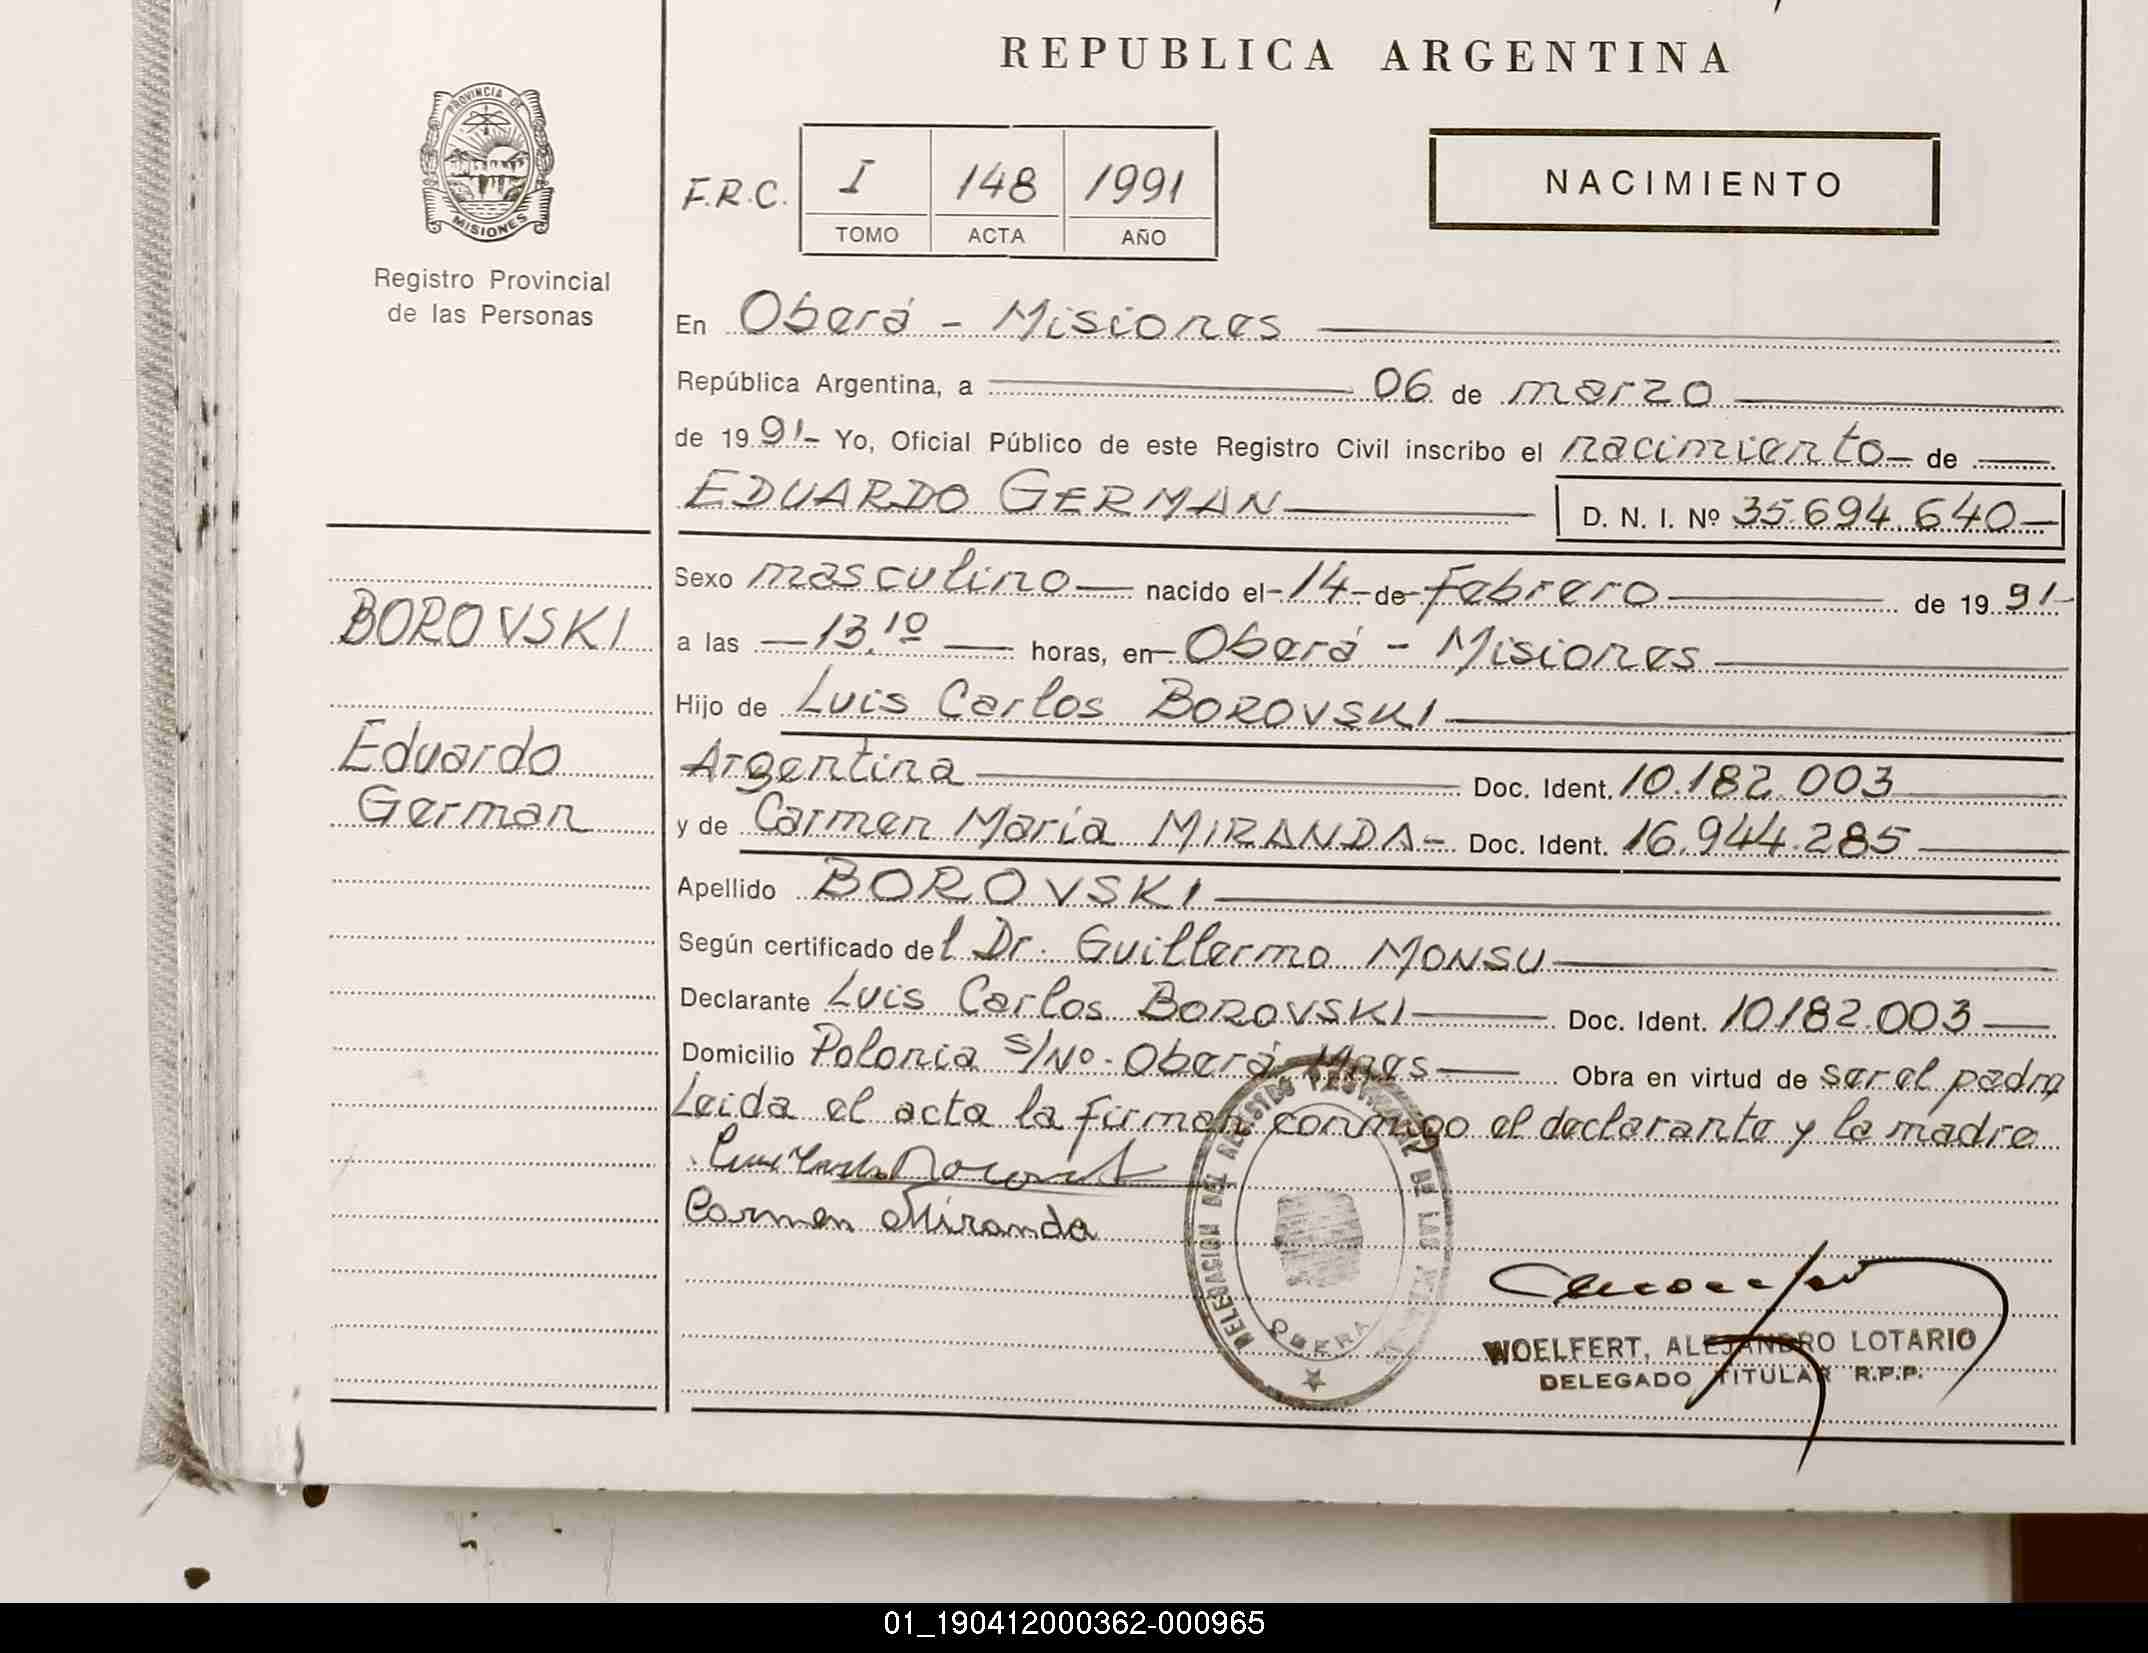 REPUBLICA ARGENTINA
PROVINCIA DE
MISIONES
Registro Provincial
de las Personas
F.R.C.
I 148 1991
TOMO ACTA AÑO
NACIMIENTO
En Oberá - Misiones
República Argentina, a 06 de marzo
de 1991- Yo, Oficial Público de este Registro Civil inscribo el nacimiento- de
EDUARDO GERMAN D. N. I. Nº 35.694.640
Sexo masculino nacido el 14 de Febrero de 1991-
BOROVSKI
a las 13,10 horas, en Oberá - Misiones
Hijo de Luis Carlos BOROVSKI
Eduardo
German
Argentina Doc. Ident. 10.182.003
y de Carmen María MIRANDA- Doc. Ident. 16.944.285
Apellido BOROVSKI
Según certificado del Dr. Guillermo MONSU
Declarante Luis Carlos BOROVSKI Doc. Ident. 10182.003
Domicilio Polonia s/Nº- Oberá Mnes Obra en virtud de ser el padre
Leida el acta la firman conmigo el declarante y la madre
Carmen Miranda
DELEGACION DEL REGISTRO PROVINCIAL DE LAS
OBERA
WOELFERT, ALEJANDRO LOTARIO
DELEGADO TITULAR R.P.P.
01_190412000362-000965